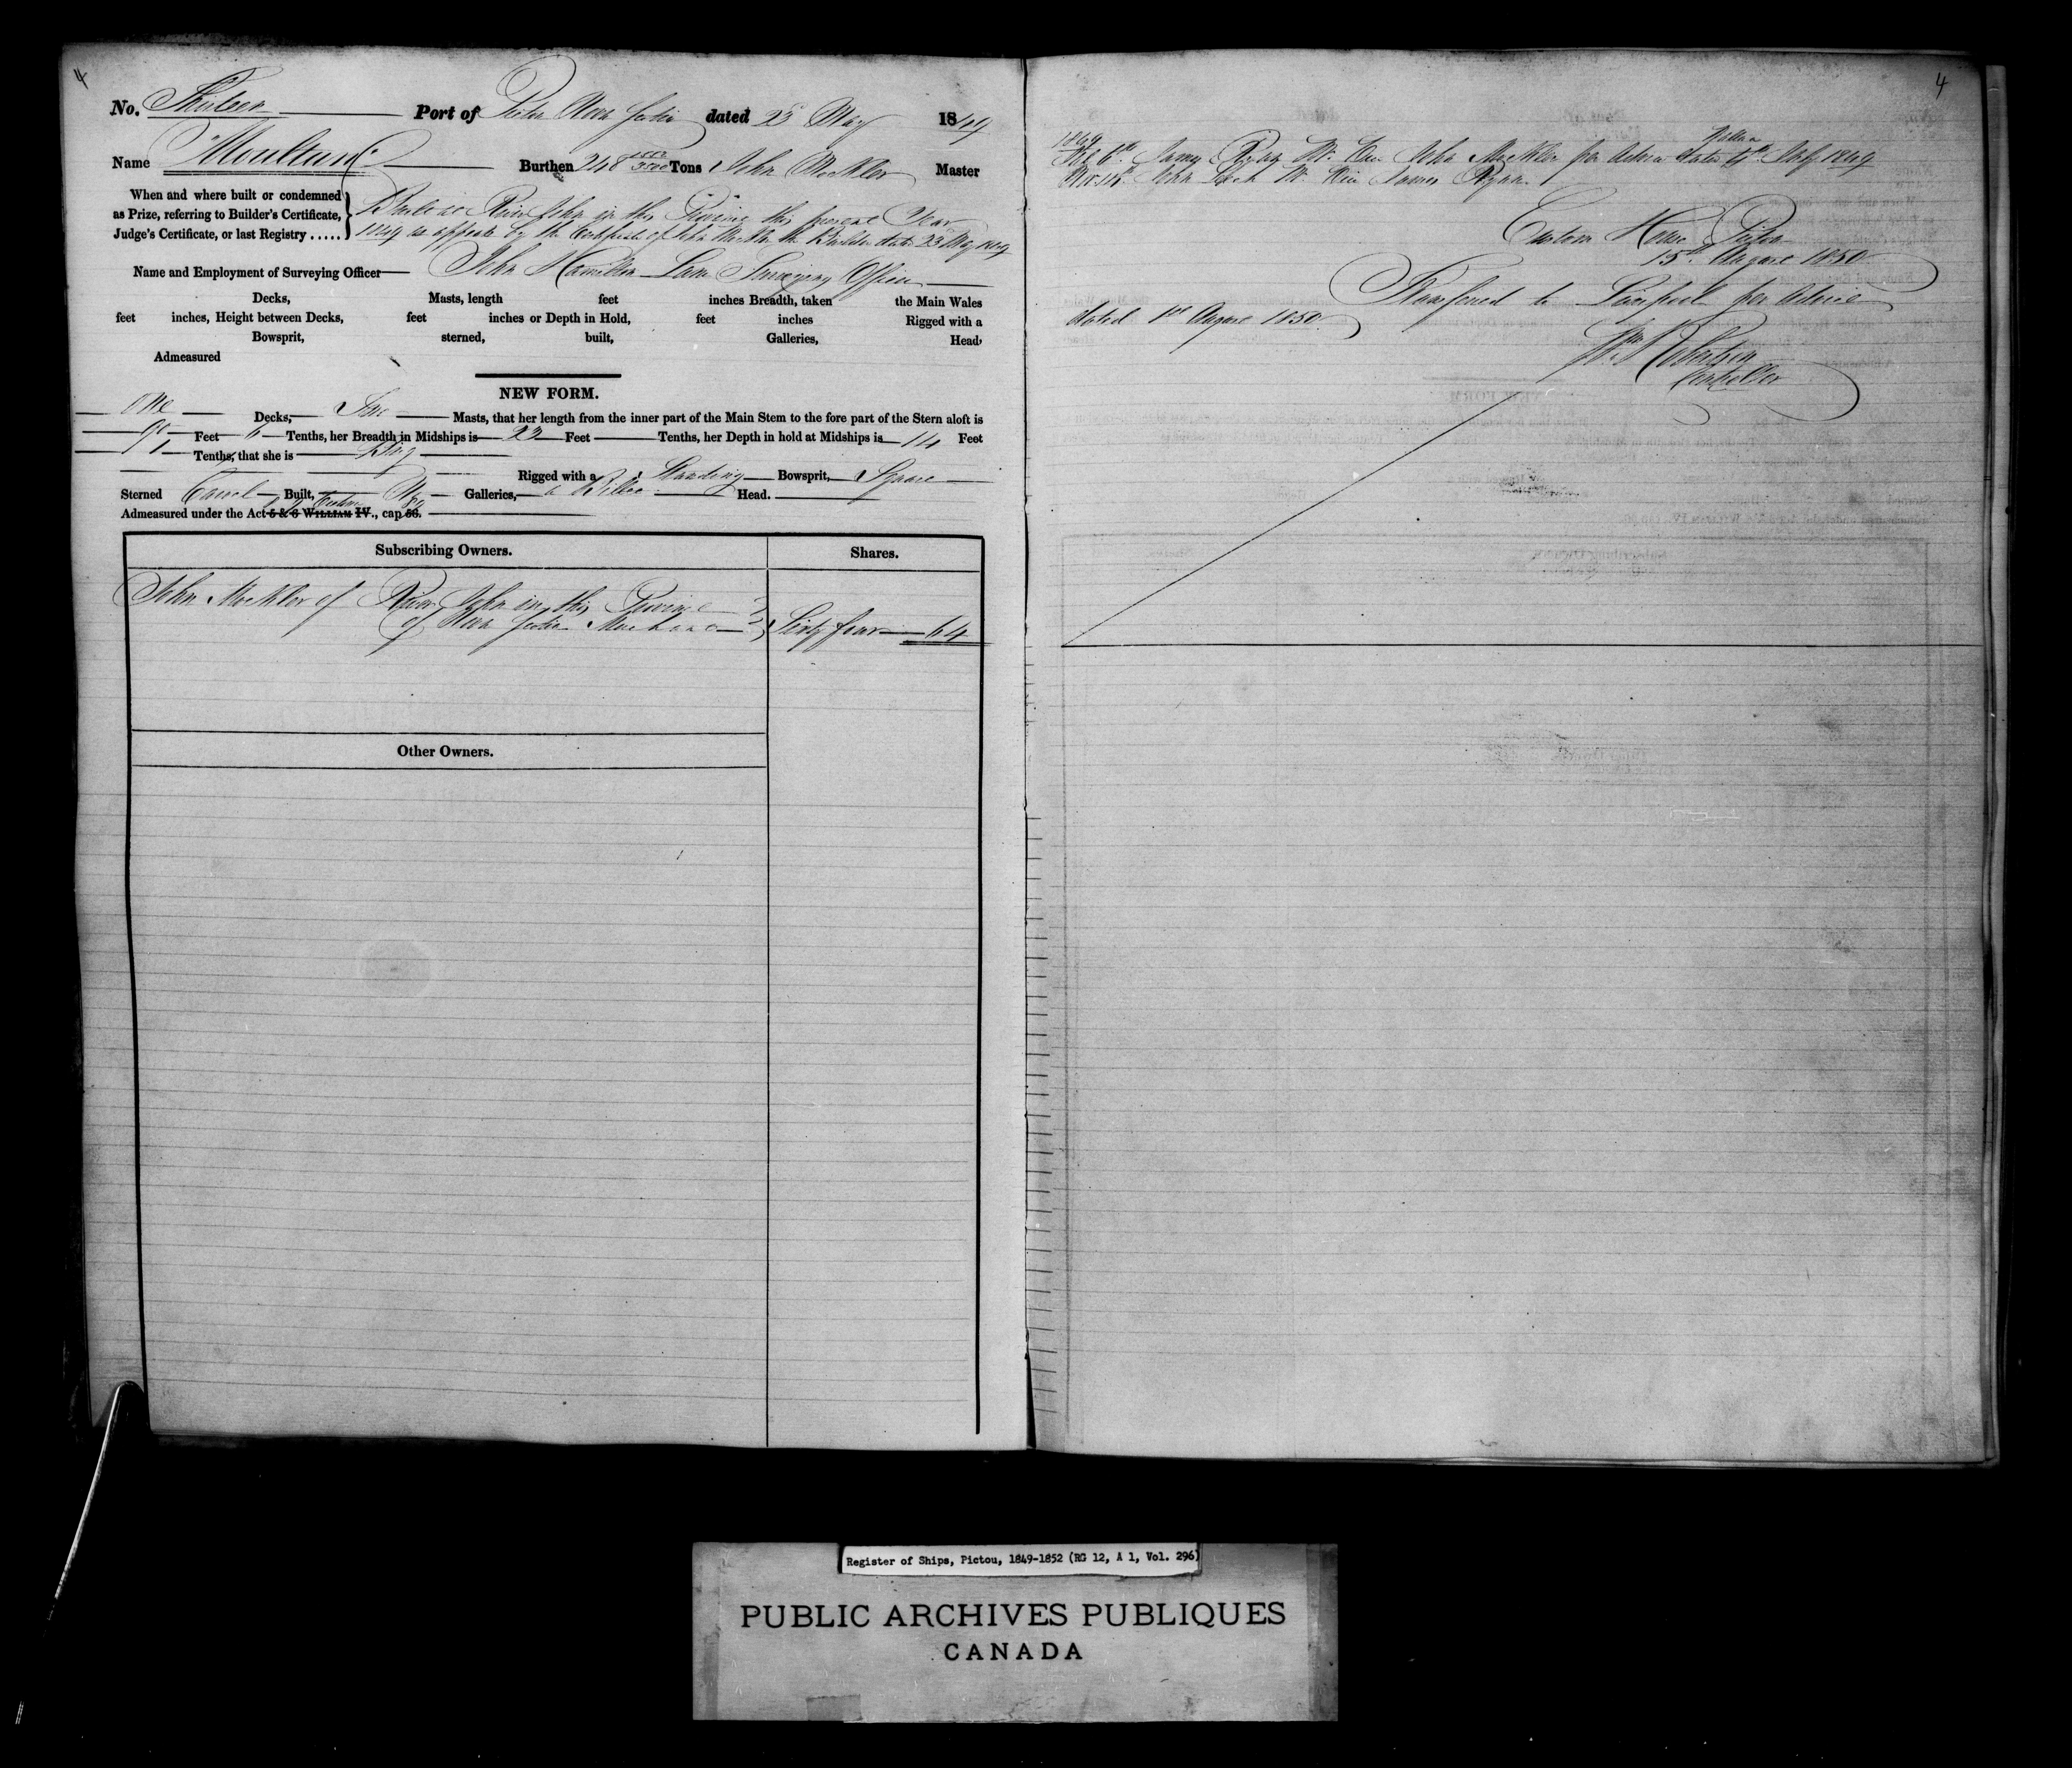 4
No. Thirteen Port of Pictou Nova Scotia dated 23d May 1849
Name Moultan Burthen 248 Tons John Mockler Master
When and where built or condemned as Prize, referring to Builder's Certificate, Judge's Certificate, or last Registry .....
Built at River John in this Province this present Year
1849 as appears by the Certificate of John Mockler the Builder dated 23 May 1849
Name and Employment of Surveying Officer John Hamilton Lane Surveying Officer
Decks, Masts, length feet inches Breadth, taken the Main Wales
feet inches, Height between Decks, feet inches or Depth in Hold, feet inches Rigged with a
Bowsprit, sterned, built, Galleries, Head,
Admeasured
NEW FORM.
One Decks, Two Masts, that her length from the inner part of the Main Stem to the fore part of the Stern aloft is
90 Feet 6 Tenths, her Breadth in Midships is 22 Feet Tenths, her Depth in hold at Midships is 14 Feet
9 Tenths, that she is Brig
Rigged with a Standing Bowsprit, Square
Sterned Carvel Built, No Galleries, a Billet Head.
Admeasured under the Act 5 & 6 WILLIAM IV., cap 56.
Subscribing Owners. Shares.
John Mockler of River John in this Province
of Nova Scotia Merchant Sixty four 64
Other Owners.
4
1849
6th James Ryan Mr. vice John Mockler per Advice dated 4th July 1849
Nov. John Mr. vice James Ryan
Custom House Pictou
15th August 1850
Transferred to Liverpool per Advice
dated 1st August 1850.
Wm Robertson
Controller
Register of Ships, Pictou, 1849-1852 (RG 12, A 1, Vol. 296)
PUBLIC ARCHIVES PUBLIQUES
CANADA